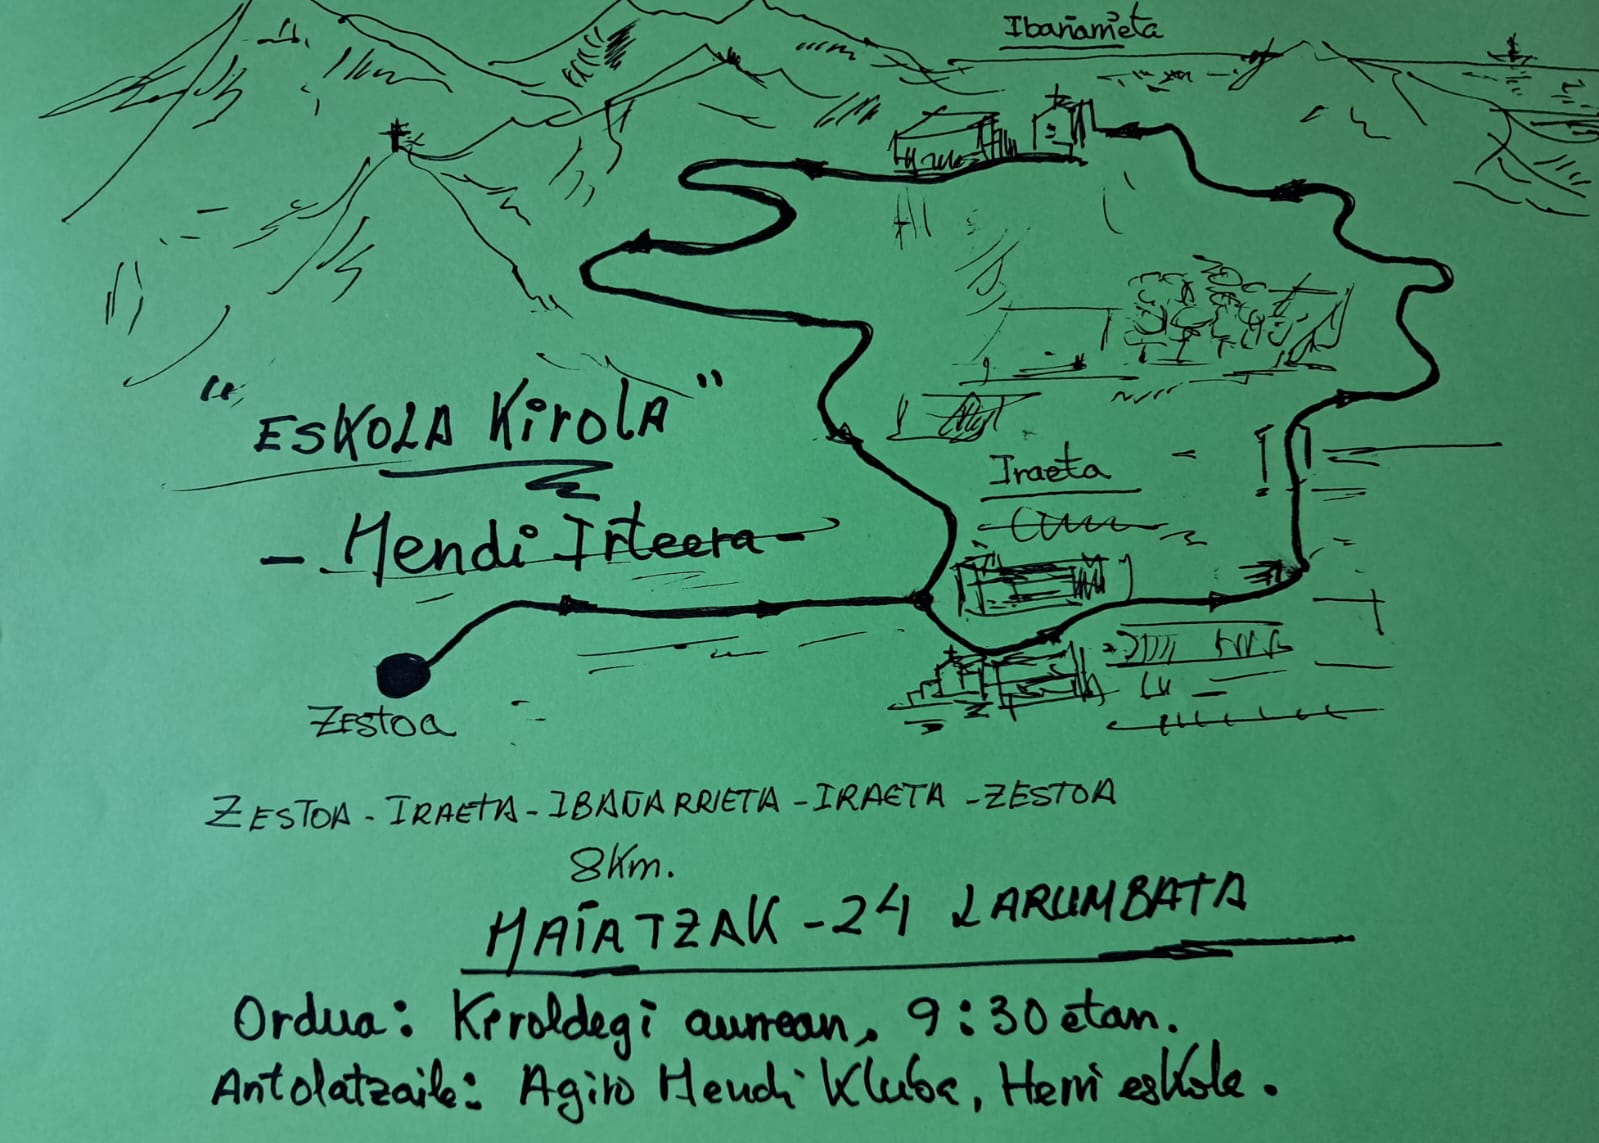 Ibañarrieta
"ESKOLA KirolA"
Iraeta
- Mendi Irteera -
ZEStoa
ZESTOA - IRAETA - IBAÑARRIETA - IRAETA - ZESTOA
8Km.
MAIATZAK - 24 LARUMBATA
Ordua: Kiroldegi aurrean, 9:30 etan.
Antolatzaile: Agiro Mendi Kluba, Herri eskola.